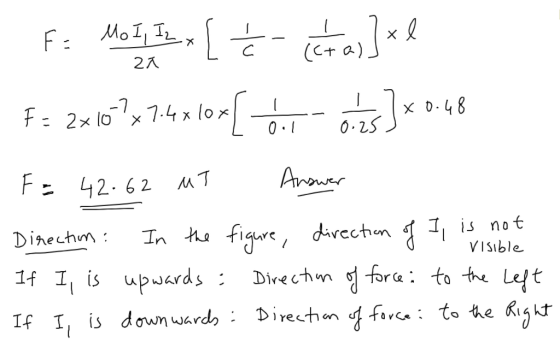 F = μ₀ I₁ I₂ / 2π × [ 1/c - 1/(c+a) ] × l
F = 2×10⁻⁷ × 7.4 × 10 × [ 1/0.1 - 1/0.25 ] × 0.48
F = 42.62 μT Answer
Direction : In the figure, direction of I₁ is not visible
If I₁ is upwards : Direction of force : to the Left
If I₁ is downwards : Direction of force : to the Right